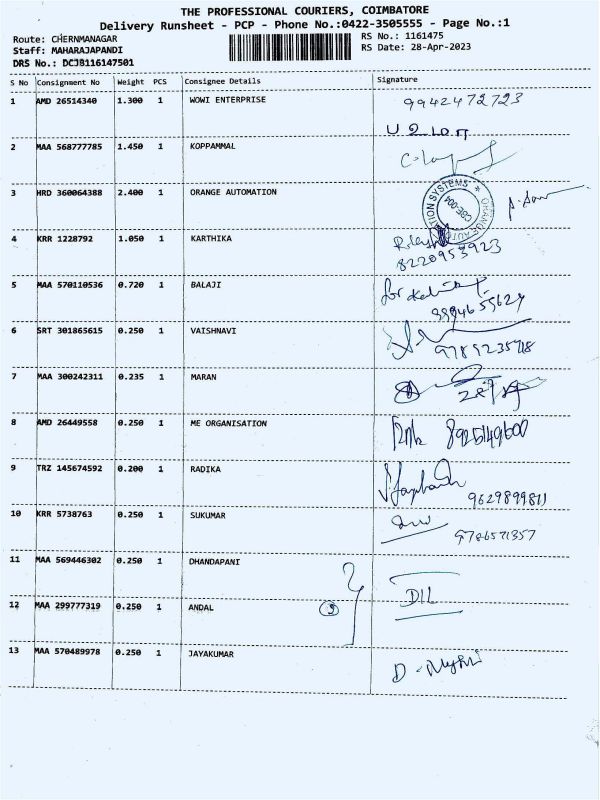 THE PROFESSIONAL COURIERS, COIMBATORE
Delivery Runsheet - PCP - Phone No.:0422-3505555 - Page No.:1
Route: CHERNMANAGAR
RS No.: 1161475
Staff: MAHARAJAPANDI
RS Date: 28-Apr-2023
DRS No.: DCJB116147501
S No Consignment No Weight PCS Consignee Details Signature
1 AMD 26514340 1.300 1 WOWI ENTERPRISE 9942472723
2 MAA 568777785 1.450 1 KOPPAMMAL
3 HRD 360064388 2.400 1 ORANGE AUTOMATION
CBE-004
4 KRR 1228792 1.050 1 KARTHIKA
8220953923
5 MAA 570110536 0.720 1 BALAJI for
6 SRT 301865615 0.250 1 VAISHNAVI
7 MAA 300242311 0.235 1 MARAN
8 AMD 26449558 0.250 1 ME ORGANISATION 8925149600
9 TRZ 145674592 0.200 1 RADIKA
9629899811
10 KRR 5738763 0.250 1 SUKUMAR
9786571357
11 MAA 569446302 0.250 1 DHANDAPANI
DIL
12 MAA 299777319 0.250 1 ANDAL
13 MAA 570489978 0.250 1 JAYAKUMAR